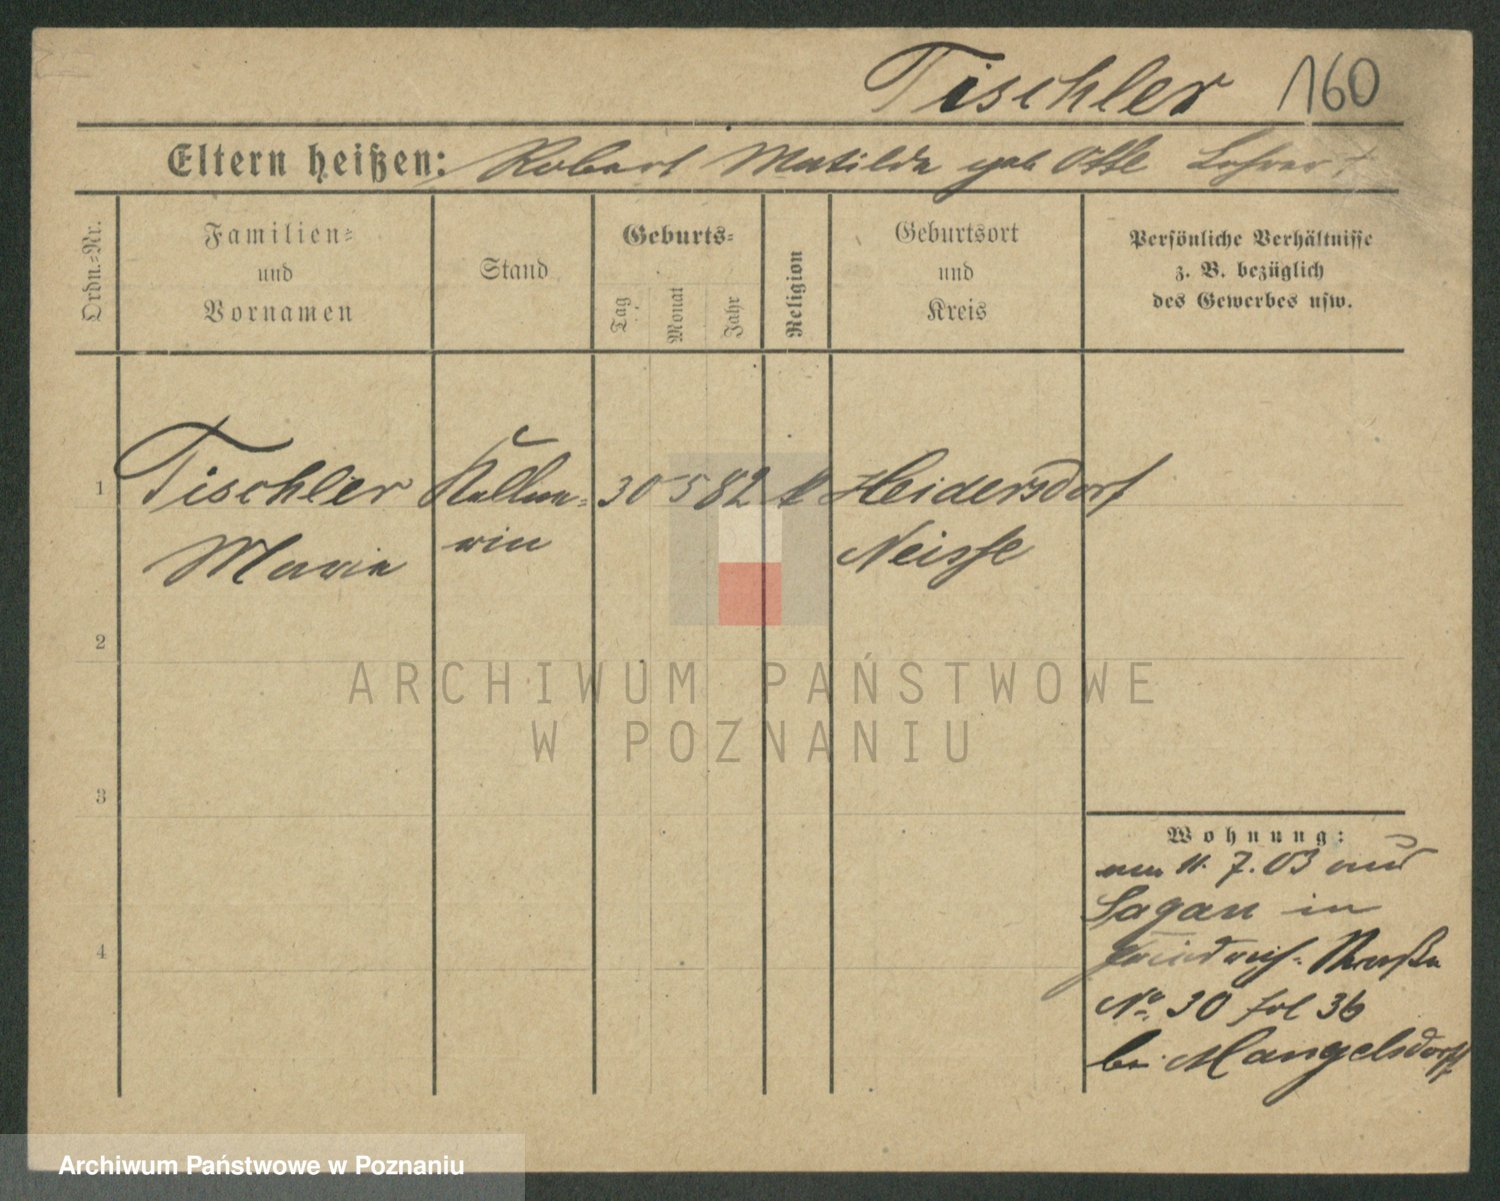 Tischler 160
Eltern heißen: Robert Matilde geb Otte Lehrer †
Ordn.=Nr.
Familien=
und
Vornamen
Stand
Geburts=
Tag
Monat
Jahr
Religion
Geburtsort
und
Kreis
Persönliche Verhältnisse
z. B. bezüglich
des Gewerbes usw.
1 Tischler Kellne= 30 5 82 k Heidersdorf
Maria rin Neisse
2
3
4
Wohnung:
am 11. 7. 03 aus
Sagan in
Friedrich=Straße
No. 30 fol 36
bei Mangelsdorff
ARCHIWUM PAŃSTWOWE
W POZNANIU
Archiwum Państwowe w Poznaniu